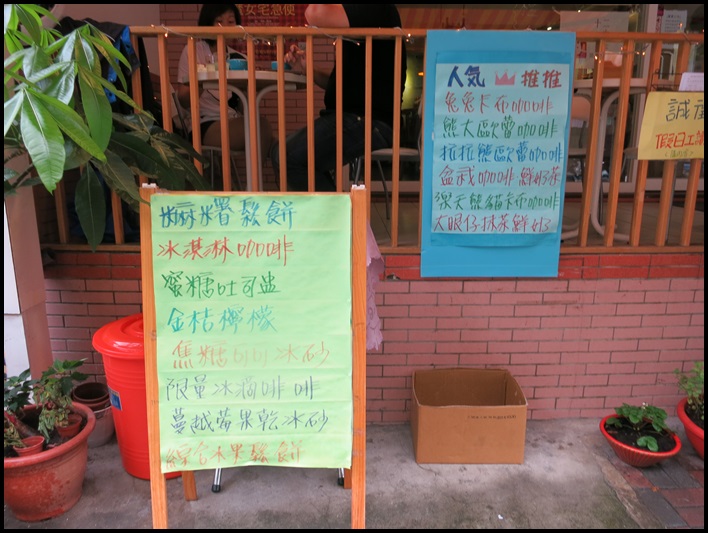 麻糬鬆餅
冰淇淋咖啡
蜜糖吐司盅
金桔檸檬
焦糖咖啡冰砂
限量冰滴咖啡
蔓越莓果乾冰砂
綜合水果鬆餅
人氣 推推
兔兔卡布咖啡
熊大歐蕾咖啡
拉拉熊歐蕾咖啡
盆栽咖啡 鮮奶茶
猴天熊貓卡布咖啡
大眼仔抹茶鮮奶
誠徵
假日工